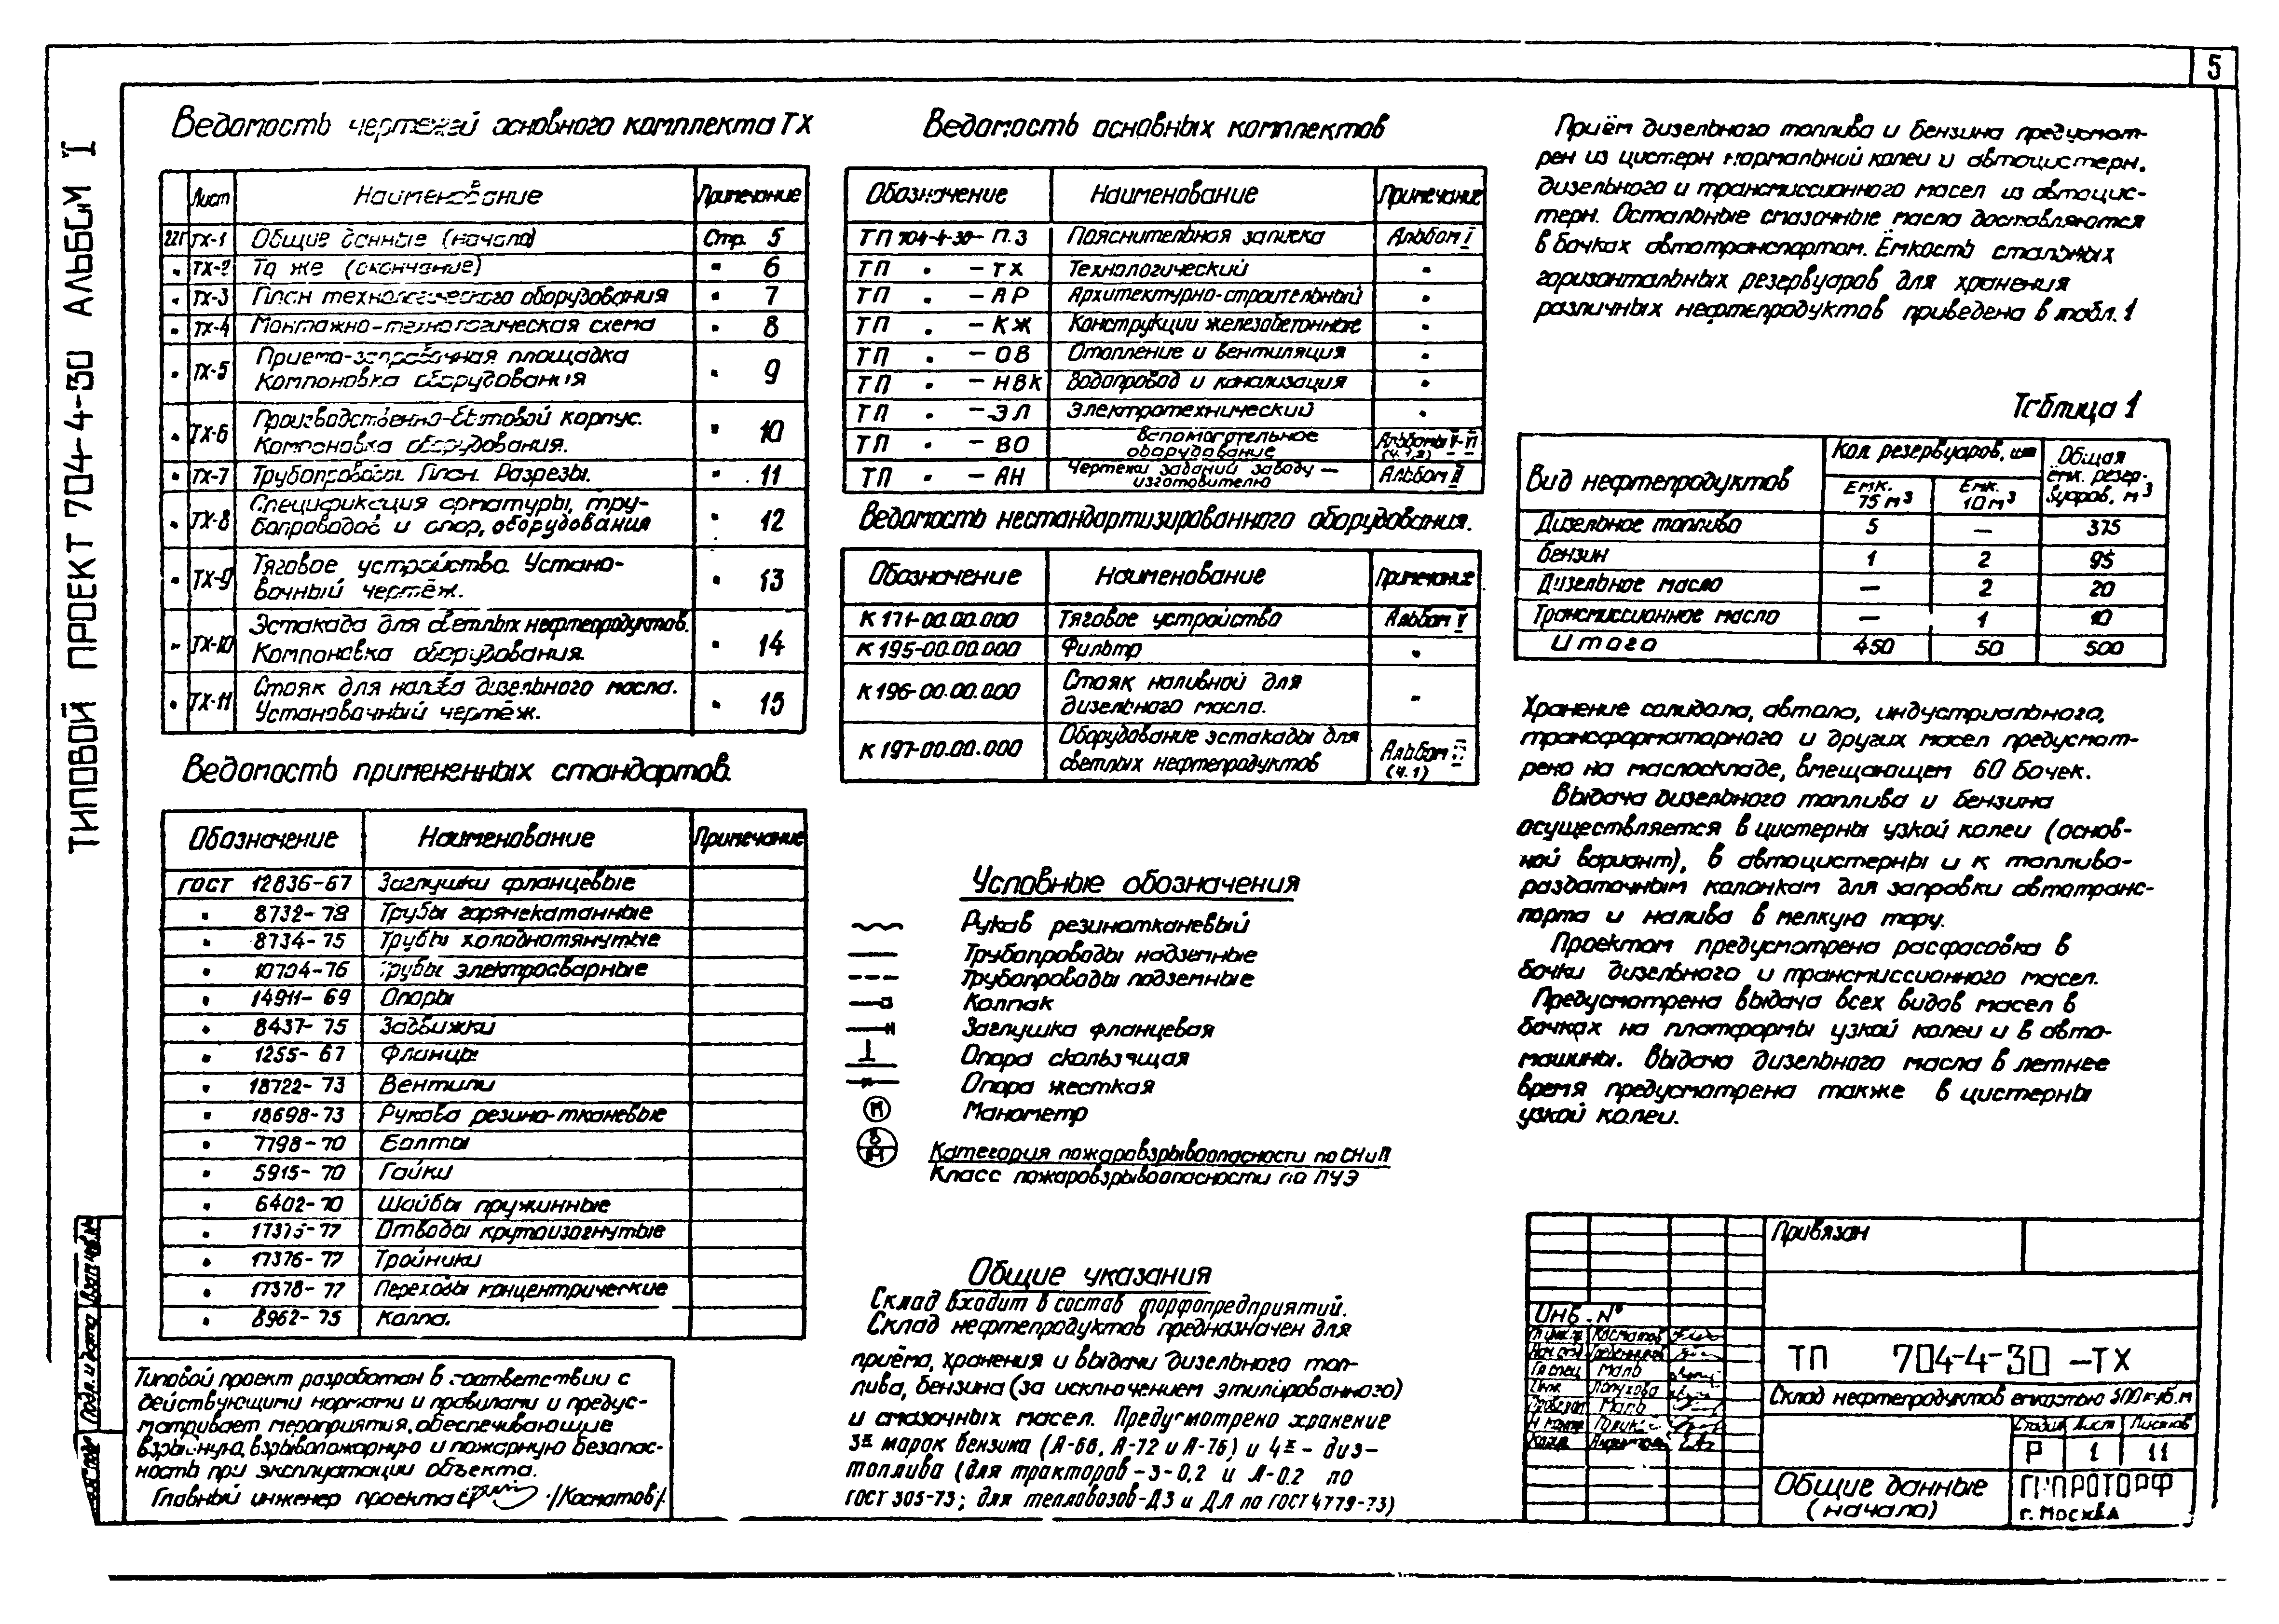 5
ТИПОВОЙ ПРОЕКТ 704-4-30 АЛЬБОМ I
Ведомость чертежей основного комплекта ТХ
Лист Наименование Примечание
22г ТХ-1 Общие данные (начало) Стр. 5
" ТХ-2 То же (окончание) " 6
" ТХ-3 План технологического оборудования " 7
" ТХ-4 Монтажно-технологическая схема " 8
" ТХ-5 Приемо-заправочная площадка " 9
Компоновка оборудования
" ТХ-6 Производственно-бытовой корпус. " 10
Компоновка оборудования.
" ТХ-7 Трубопроводы План. Разрезы. " 11
" ТХ-8 Спецификация арматуры, тру- " 12
бопроводов и опор, оборудования
" ТХ-9 Тяговое устройство. Устано- " 13
вочный чертёж.
" ТХ-10 Эстакада для светлых нефтепродуктов. " 14
Компоновка оборудования.
" ТХ-11 Стояк для налива дизельного масла. " 15
Установочный чертёж.
Ведомость примененных стандартов.
Обозначение Наименование Примечание
ГОСТ 12836-67 Заглушки фланцевые
" 8732-78 Трубы горячекатанные
" 8734-75 Трубы холоднотянутые
" 10704-76 Трубы электросварные
" 14911-69 Опоры
" 8437-75 Задвижки
" 1255-67 Фланцы
" 18722-73 Вентили
" 18698-73 Рукава резино-тканевые
" 7798-70 Болты
" 5915-70 Гайки
" 6402-70 Шайбы пружинные
" 17375-77 Отводы крутоизогнутые
" 17376-77 Тройники
" 17378-77 Переходы концентрические
" 8962-75 Колпа.
Типовой проект разработан в соответствии с
действующими нормами и правилами и предус-
матривает мероприятия, обеспечивающие
взрывную, взрывопожарную и пожарную безопас-
ность при эксплуатации объекта.
Главный инженер проекта /Косматов/.
Ведомость основных комплектов
Обозначение Наименование Примечание
ТП 704-4-30- П.З Пояснительная записка Альбом I
ТП " -ТХ Технологический "
ТП " -АР Архитектурно-строительный "
ТП " -КЖ Конструкции железобетонные "
ТП " -ОВ Отопление и вентиляция "
ТП " -НВК Водопровод и канализация "
ТП " -ЭЛ Электротехнический "
ТП " -ВО Вспомогательное оборудование Альбомы V-VI (ч.1,2)
ТП " -АН Чертежи заданий заводу — изготовителю Альбом II
Ведомость нестандартизированного оборудования.
Обозначение Наименование Примечание
К 171-00.00.000 Тяговое устройство Альбом V
К 195-00.00.000 Фильтр "
К 196-00.00.000 Стояк наливной для "
дизельного масла.
К 197-00.00.000 Оборудование эстакады для Альбом
светлых нефтепродуктов (ч.1)
Условные обозначения
Рукав резинотканевый
Трубопроводы надземные
Трубопроводы подземные
Колпак
Заглушка фланцевая
Опора скользящая
Опора жесткая
М Манометр
Категория пожаровзрывоопасности по СНиП
Класс пожаровзрывоопасности по ПУЭ
Общие указания
Склад входит в состав торфопредприятий.
Склад нефтепродуктов предназначен для
приёма, хранения и выдачи дизельного топ-
лива, бензина (за исключением этилированного)
и смазочных масел. Предусмотрено хранение
3х марок бензина (А-66, А-72 и А-76) и 4х - диз-
топлива (для тракторов -З-0,2 и Л-0.2 по
ГОСТ 305-73; для тепловозов-ДЗ и ДЛ по ГОСТ 4779-73)
Приём дизельного топлива и бензина предусмот-
рен из цистерн нормальной колеи и автоцистерн.
дизельного и трансмиссионного масел из автоцис-
терн. Остальные смазочные масла доставляются
в бочках автотранспортом. Ёмкость стальных
горизонтальных резервуаров для хранения
различных нефтепродуктов приведена в табл. 1
Таблица 1
Вид нефтепродуктов Кол. резервуаров, шт Общая ёмк. резер- вуаров, м3
Емк. 75 м3 Емк. 10 м3
Дизельное топливо 5 — 375
Бензин 1 2 95
Дизельное масло — 2 20
Трансмиссионное масло — 1 10
Итого 450 50 500
Хранение солидола, автола, индустриального,
трансформаторного и других масел предусмот-
рено на маслоскладе, вмещающем 60 бочек.
Выдача дизельного топлива и бензина
осуществляется в цистерны узкой колеи (основ-
ной вариант), в автоцистерны и к топливо-
раздаточным колонкам для заправки автотранс-
порта и налива в мелкую тару.
Проектом предусмотрена расфасовка в
бочки дизельного и трансмиссионного масел.
Предусмотрена выдача всех видов масел в
бочках на платформы узкой колеи и в авто-
машины. Выдача дизельного масла в летнее
время предусмотрена также в цистерны
узкой колеи.
Привязан
Инв. №
ТП 704-4-30 -ТХ
Склад нефтепродуктов емкостью 500 куб.м
Стадия Лист Листов
Р 1 11
Общие данные
(начало)
ГИПРОТОРФ
г. Москва
Косматов
Гл спец Маль
Инж Лопухова
Проверил Маль
Н контр
Подп. и дата Взам инв.№